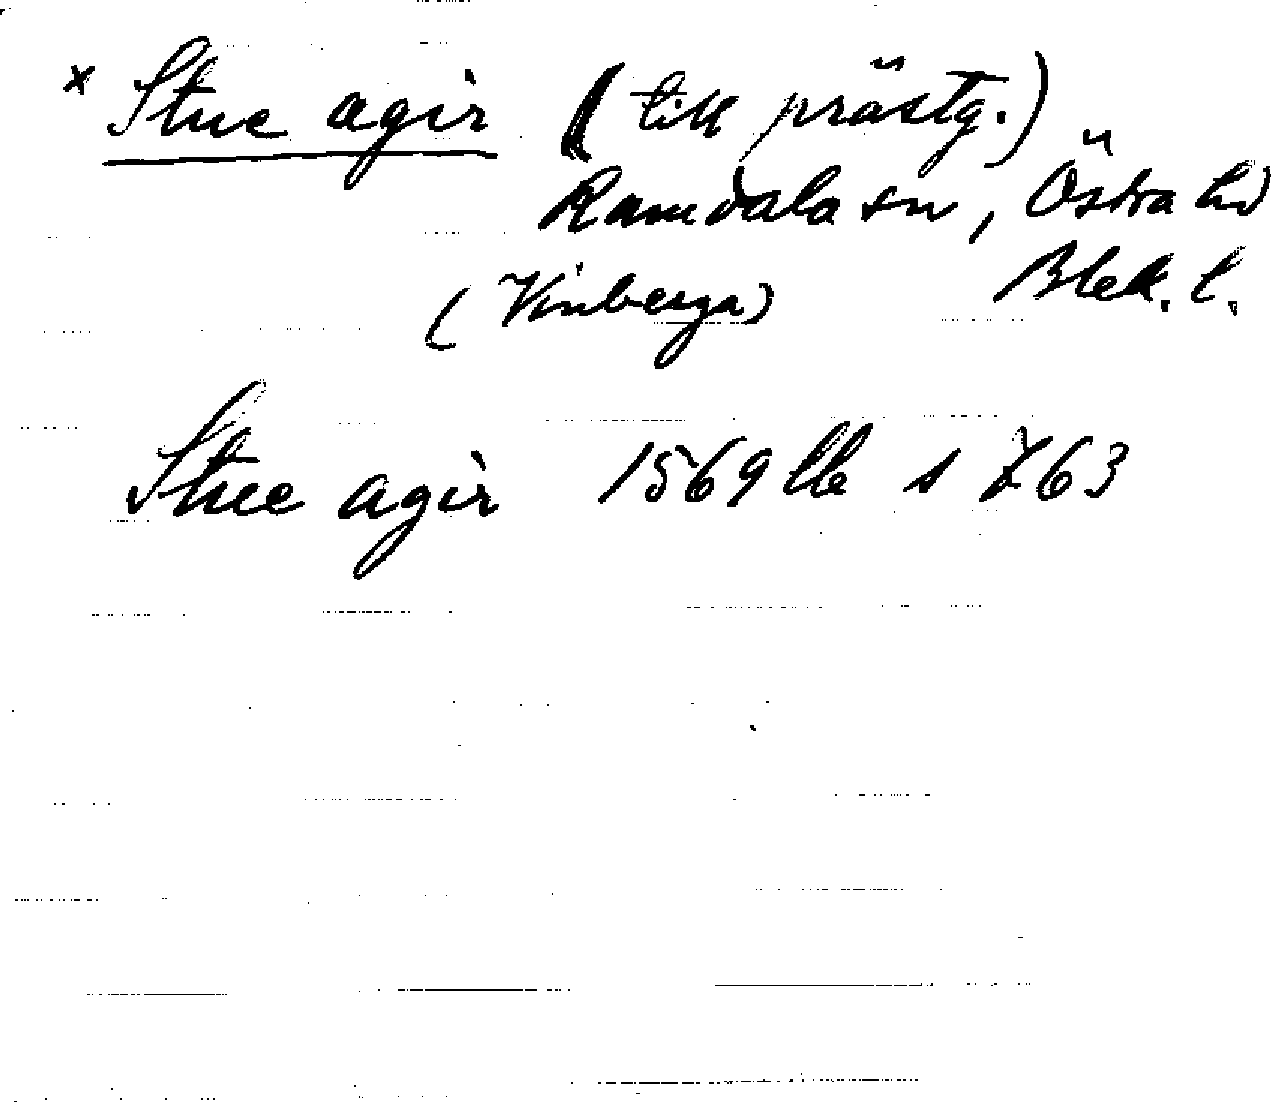 × Stue agir (till prästg.)
Ramdala sn, Östra hd
(Vinberga) Blek. l.
Stue agir 1569 lb s 263